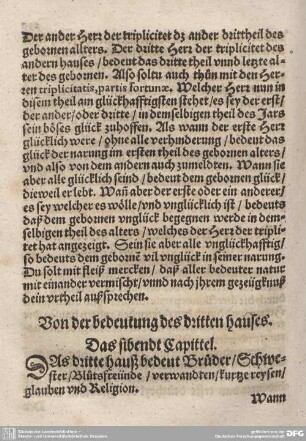 Der ander Herr der triplicitet dz ander drittheil des
gebornen allters. Der dritte Herr der triplicitet des
andern hauses / bedeut das dritte theil vnnd letzte al-
ter des gebornen. Also soltu auch thůn mit den Her-
ren triplicitatis, partis fortunæ. Welcher Herr nun in
disem theil am glückhafftigsten stehet / es sey der erst /
der ander / oder dritte / in demselbigen theil des Jars
sein böses glück zuhoffen. Als wann der erste Herr
glücklich were / ohne alle verhinderung / bedeut das
glück der narung im ersten theil des gebornen alters /
vnd also von dem andern auch zumeldten. Wann sie
aber alle glücklich seind / bedeut dem gebornen glück /
dieweil er lebt. Wañ aber der erste oder ein anderer /
es sey welcher es wölle / vnd vnglücklich ist / bedeuts
daß dem gebornen vnglück begegnen werde in dem-
selbigen theil des alters / welches der Herr der tripli-
tet hat angezeigt. Sein sie aber alle vnglückhafftig /
so bedeuts dem gebornē vil vnglück in seiner narung.
Du solt mit fleiß mercken / daß aller bedeuter natur
mit einander vermischt / vnnd nach jhrem gezeügknuß
dein vrtheil außsprechen.
Von der bedeutung des dritten hauses.
Das sibendt Capittel.
DAs dritte hauß bedeut Brüder / Schwe-
ster / Blůtsfreünde / verwandten / kurtze reysen /
glauben vnd Religion.
Wann